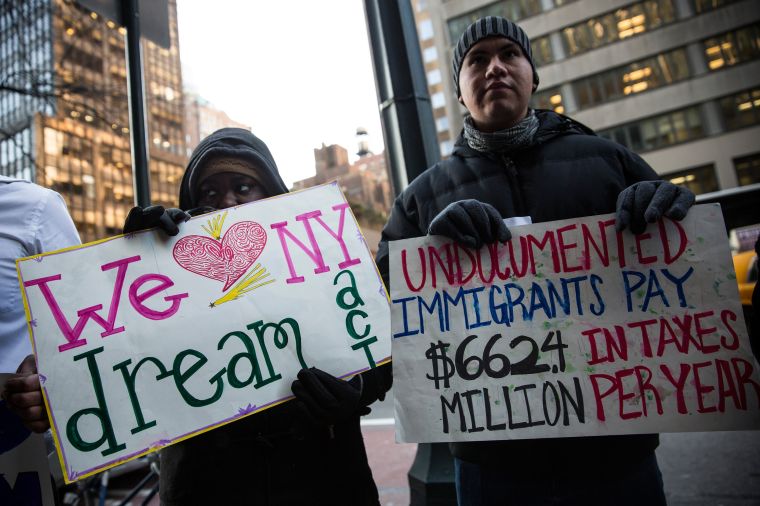 We NY
dream act
UNDOCUMENTED
IMMIGRANTS PAY
$662.4 IN TAXES
MILLION PER YEAR